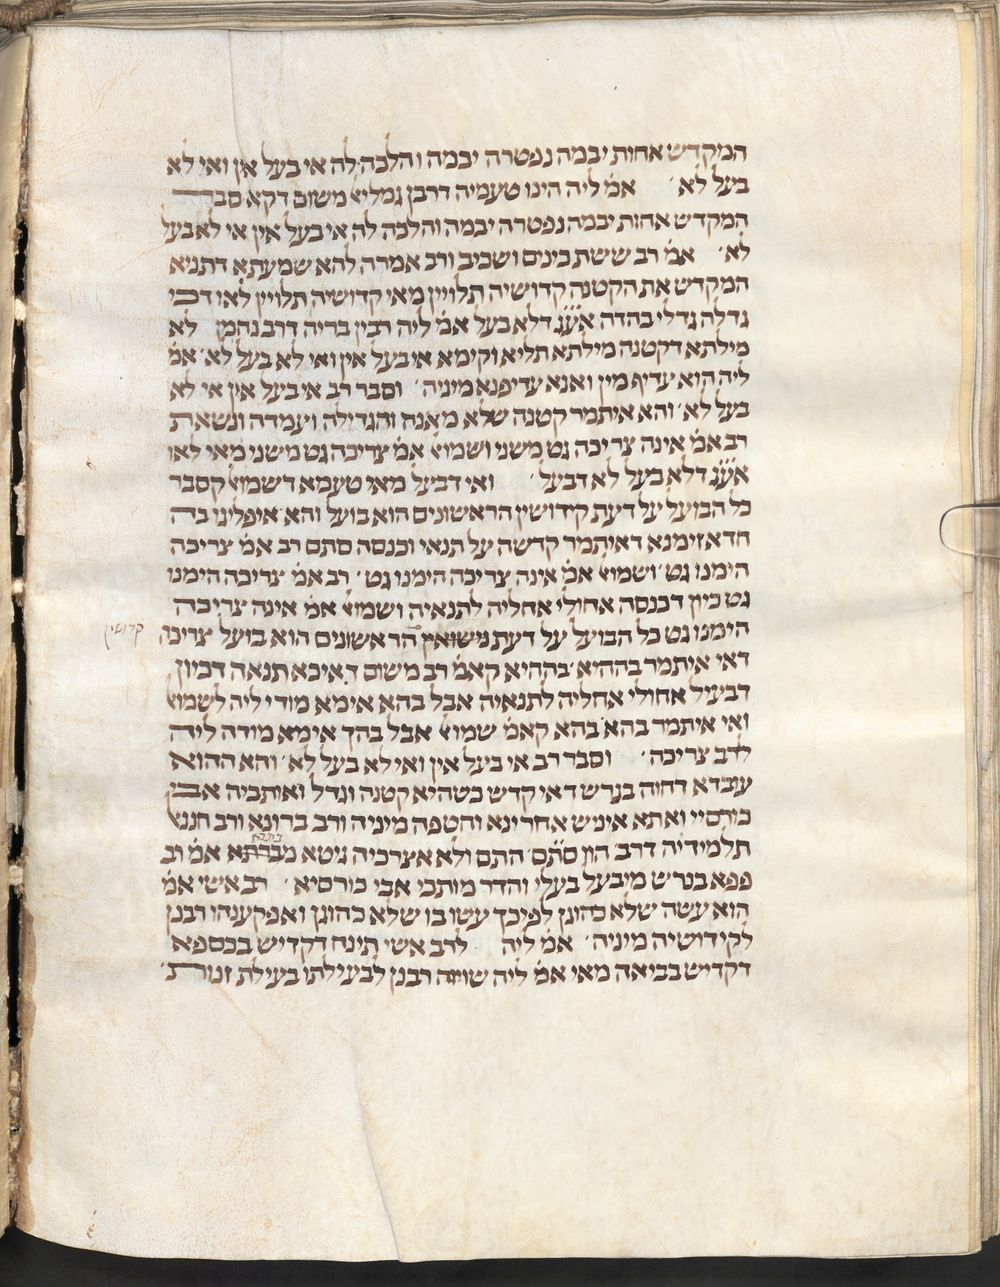 המקדש אחות יבמה נפטרה יבמה והלכה לה אי בעל אין ואי לא
בעל לא׳ אמ׳ ליה הינו טעמיה דרבן גמליא׳ משום דקא סבר
המקדש אחות יבמה נפטרה יבמה והלכה לה אי בעל אין אי לא בעל
לא׳ אמ׳ רב ששת כי נים ושכיב ורב אמרה להא שמעתא דתניא
המקדש את הקטנה קדושיה תלויין מאי קדושיה תלויין לאו דכי
גדלה גדלי בהדה אע׳ג׳ דלא בעל אמ׳ ליה רבין בריה דרב נחמן לא
מילתא דקטנה מילתא תליא וקימא אי בעל אין ואי לא בעל לא׳ אמ׳
ליה הוא עדיף מין ואנא עדיפנא מיניה׳ וסבר רב אי בעל אין אי לא
בעל לא׳ והא איתמר קטנה שלא מאנה והגדילה ועמדה ונשאת
רב אמ׳ אינה צריכה גט משני ושמוא׳ אמ׳ צריכה גט משני מאי לאו
אע׳ג׳ דלא בעל לא דבעל׳ ואי דבעל מאי טעמא דשמוא׳ קסבר
כל הבועל על דעת קידושין הראשונים הוא בועל והא איפליגו בה
חדא זימנא דאיתמר קדשה על תנאי וכנסה סתם רב אמ׳ צריכה
הימנו גט׳ ושמוא׳ אמ׳ אינה צריכה הימנו גט׳ רב אמ׳ צריכה הימנו
גט כיון דכנסה אחולי אחליה לתנאיה ושמוא׳ אמ׳ אינה צריכה
הימנו גט כל הבועל על דעת נישואין הראשונים הוא בועל צריכה קדושין
דאי איתמר בההיא׳ בההיא קאמ׳ רב משום דאיכא תנאה דכיון
דבעל אחולי אחליה לתנאיה אבל בהא אימא מודי ליה לשמוא׳
ואי איתמר בהא׳ בהא קאמ׳ שמוא׳ אבל בהך אימא מודה ליה
לרב צריכה׳ וסבר רב אי בעל אין ואי לא בעל לא׳ והא ההוא
עובדא דהוה בנרש דאיקדש כשהיא קטנה וגדל ואותביה אבי
כורסיי ואתא איניש אחרינא וחטפה מיניה ורב ברונא ורב חננא׳
תלמידיה דרב הוו התם ולא אצרכיה גיטא מבתרא אמ׳ רב
פפא בנרש מיבעל בעלי והדר מותבי אבי כורסיא׳ רב אשי אמ׳
הוא עשה שלא כהוגן לפיכך עשו בו שלא כהוגן ואפקענהו רבנן
לקידושיה מיניה׳ אמ׳ ליה לרב אשי תינח דקדיש בכספא
דקדיש בביאה מאי אמ׳ ליה שויה רבנן לבעילתו בעילת זנות׳